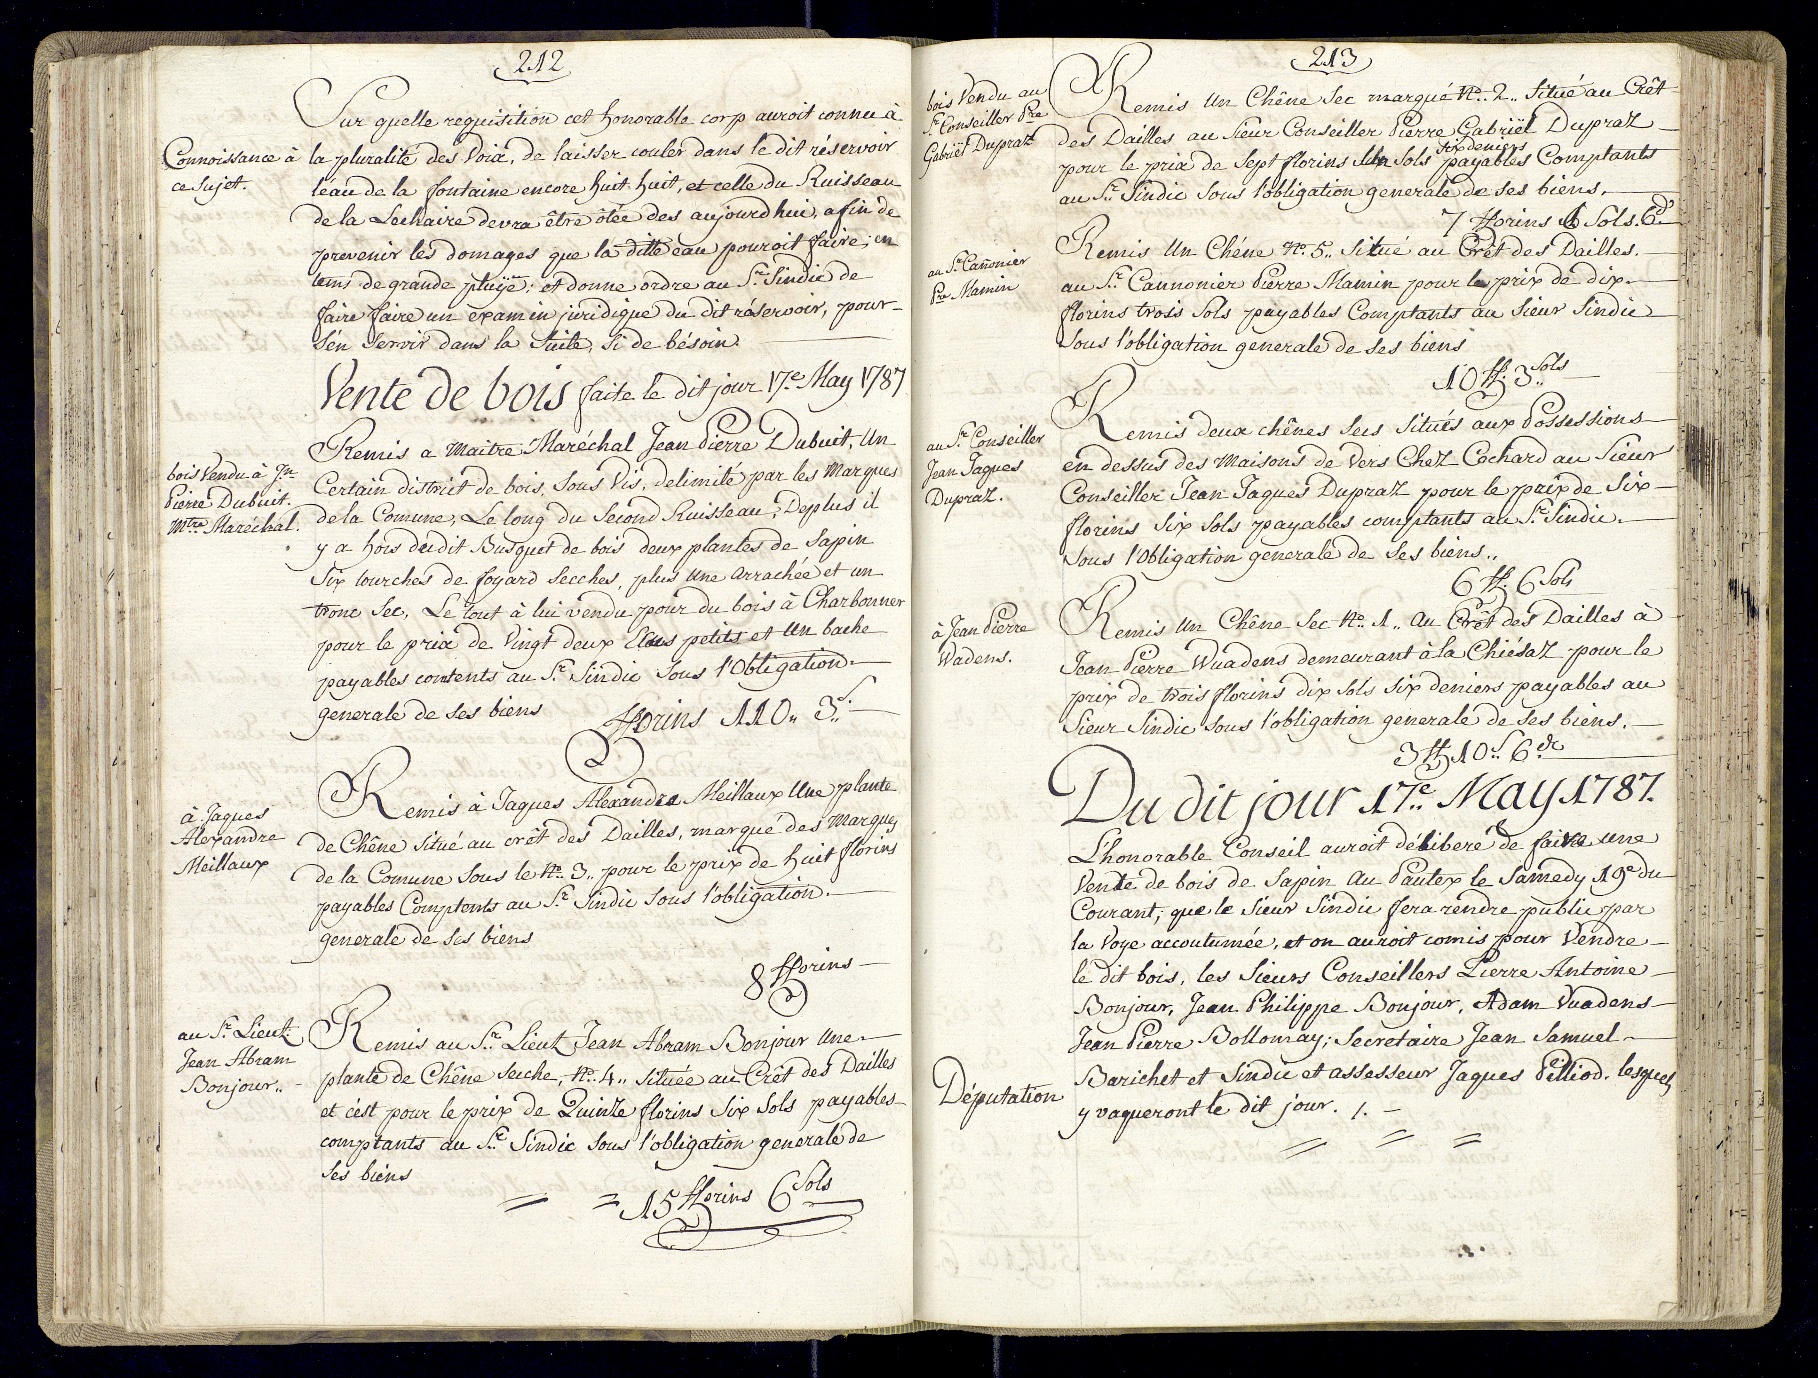 212
Sur quelle requisition cet honorable corp auroit connu à
Connoissance à
ce sujet.
la pluralité des Voix, de laisser couler dans le dit réservoir
leau de la fontaine encore huit huit, et celle du Ruisseau
de la Lechaire devra être ôtée des aujourdhui, afin de
prevenir les domages que la ditte eau pouroit faire, en
tems de grande pluÿe; et donne ordre au Sr. Sindic de
faire faire un examin juridique du dit réservoir, pour
s'én servir dans la Suite, Si de bésoin.
Vente de bois faite le dit jour 17.e May 1787
bois Vendu à Jn
Pierre Dubuit.
Mtre Maréchal.
Remis a Maitre Maréchal Jean Pierre Dubuit, Un
Certain district de bois, Sous Vis, delimité par les Marques
de la Comune, Le long du Second Ruisseau, Deplus il
y a hors du dit Busquet de bois deux plantes de Sapin
Six tourches de foyard Secches, plus une arrachée et un
tronc Sec, Le tout à lui vendu pour du bois à Charbonner
pour le prix de Vingt deux Ecus petits et Un bache
payables contents au Sr. Sindic Sous l'Obligation
generale de Ses biens
florins 110.. 3.s
à Jaques
Alexandre
Meillaux
Remis à Jaques Alexandre Meillaux Une plante
de Chêne Situé au crêt des Dailles, marqué des Marques
de la Comune Sous le No. 3.. pour le prix de huit florins
payables Comptents au Sr. Sindic Sous l'obligation
generale de Ses biens
8 fflorins
au Sr. Lieut.
Jean Abram
Bonjour..
Remis au Sr. Lieut Jean Abram Bonjour Une
plante de Chêne Seiche, No. 4.. située au Crêt des Dailles
et c'est pour le prix de Quinze florins Six Sols payables
comptants au Sr. Sindic Sous l'obligation generale de
Ses biens
= = 15 fflorins 6 Sols
213
bois Vendu au
Sr. Conseiller Pre
Gabriël Dupraz
Remis Un Chêne Sec marqué No. 2.. Situé au Crêt
des Dailles au Sieur Conseiller Pierre Gabriël Dupraz
six deniers
pour le prix de Sept florins Sols payables Comptants
au Sr. Sindic Sous l'obligation generale de Ses biens.
7 fflorins Sols. 6.d
au Sr. Cañonier
Pre Mamin
Remis Un Chéne No. 5.. Situé au Crêt des Dailles.
au Sr. Cannonier Pierre Mamin pour le prix de dix
florins trois Sols payables Comptants au Sieur Sindic
Sous l'obligation generale de Ses biens
10 ff. 3.. Sols
au Sr. Conseiller
Jean Jaques
Dupraz.
Remis deux chênes Secs Situés aux Possessions
en dessus des Maisons de Vers Chez Cochard au Sieur
Conseiller Jean Jaques Dupraz pour le prix de Six
florins Six Sols payables comptants au Sr. Sindic.
Sous l'Obligation generale de Ses biens..
6 ff. 6 Sols
à Jean Pierre
Wadens.
Remis Un Chêne Sec No. 1.. au Crêt des Dailles à
Jean Pierre Wuadens demeurant à la Chiésaz pour le
prix de trois florins dix Sols Six deniers payables au
Sieur Sindic Sous l'obligation generale de Ses biens.
3 ff. 10.s 6.dr
Du dit jour 17.e May 1787.
L'honorable Conseil auroit délibéré de faire une
Vente de bois de Sapin au Pautex le Samedy 19e du
Courant, que le Sieur Sindic fera rendre public par
la Voye accoutumée, et on auroit comis pour Vendre
le dit bois, les Sieurs Conseillers Pierre Antoine
Bonjour, Jean Philippe Bonjour, Adam Vuadens
Jean Pierre Bollomay; Secretaire Jean Samuel
Députation
Barichet et Sindic et assesseur Jaques Pilliod. lesquels
y vaqueront le dit jour. /. –
= = =